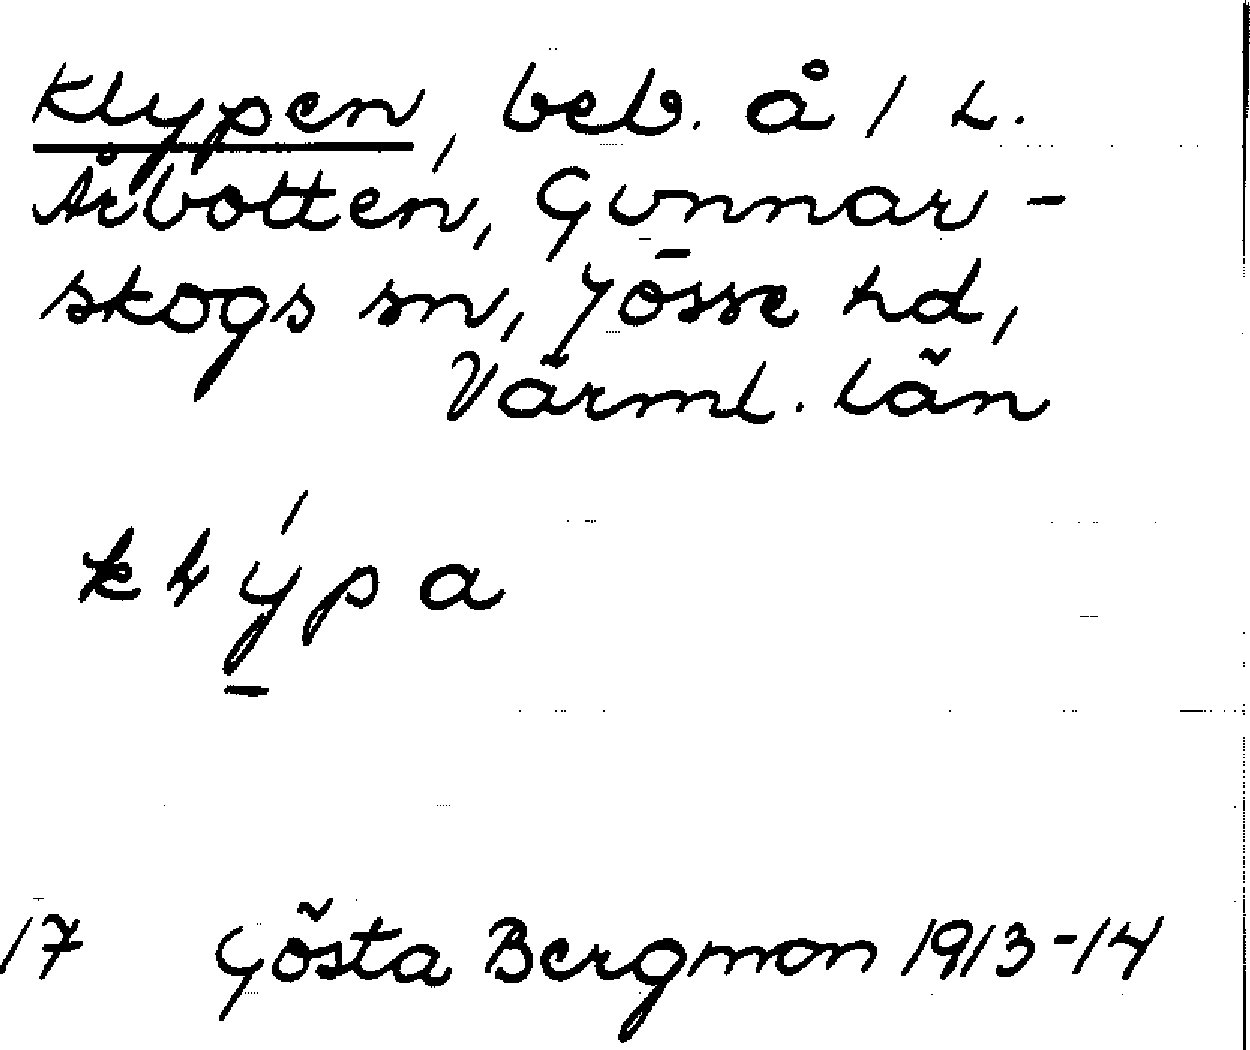 Klypen, beb. å 1 L.
Årbotten, Gunnar-
skogs sn, Jösse hd,
Värml. län
klýpa
17 Gösta Bergman 1913-14